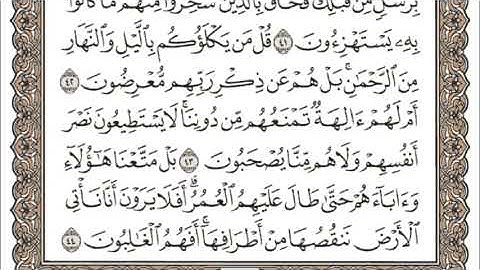 بِرُسُلٍ مِّن قَبْلِكَ فَحَاقَ بِٱلَّذِينَ سَخِرُوا۟ مِنْهُم مَّا كَانُوا۟
بِهِۦ يَسْتَهْزِءُونَ ٤١ قُلْ مَن يَكْلَؤُكُم بِٱلَّيْلِ وَٱلنَّهَارِ
مِنَ ٱلرَّحْمَـٰنِ ۚ بَلْ هُمْ عَن ذِكْرِ رَبِّهِم مُّعْرِضُونَ ٤٢
أَمْ لَهُمْ ءَالِهَةٌ تَمْنَعُهُم مِّن دُونِنَا ۚ لَا يَسْتَطِيعُونَ نَصْرَ
أَنفُسِهِمْ وَلَا هُم مِّنَّا يُصْحَبُونَ ٤٣ بَلْ مَتَّعْنَا هَـٰٓؤُلَآءِ
وَءَابَآءَهُمْ حَتَّىٰ طَالَ عَلَيْهِمُ ٱلْعُمُرُ ۗ أَفَلَا يَرَوْنَ أَنَّا نَأْتِى
ٱلْأَرْضَ نَنقُصُهَا مِنْ أَطْرَافِهَآ ۚ أَفَهُمُ ٱلْغَـٰلِبُونَ ٤٤